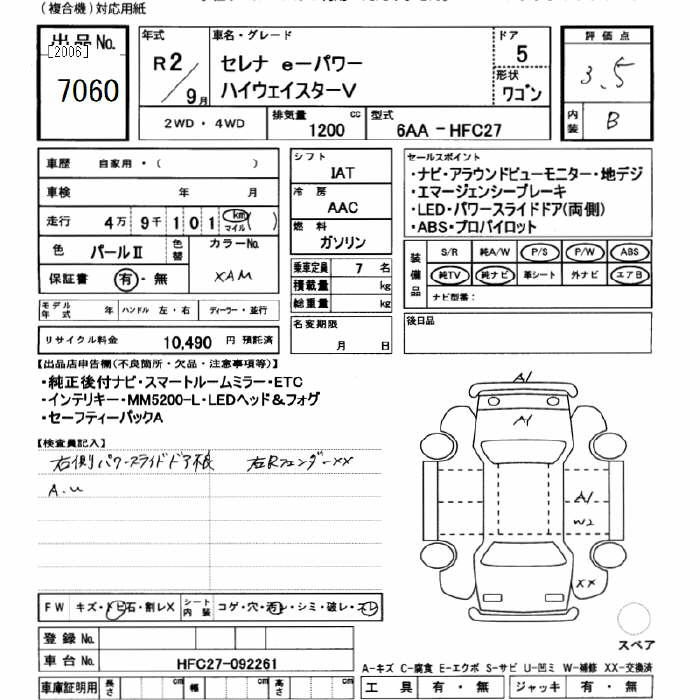 (複合機)対応用紙
出品No.
[2006]
7060
年式
R2/9月
車名・グレード
セレナ e-パワー
ハイウェイスターV
ドア
5
形状
ワゴン
評価点
3.5
内装
B
2WD・4WD
排気量
1200
cc
型式
6AA-HFC27
車歴 自家用・( )
車検 年 月
走行 4万 9千 1 0 1 km マイル ( )
色 パールⅡ 色替
カラーNo.
XAM
保証書 有・無
モデル年式 年 ハンドル 左・右 ディーラー・並行
リサイクル料金 10,490 円 預託済
シフト
IAT
冷房
AAC
燃料
ガソリン
乗車定員 7 名
積載量 kg
総重量 kg
名変期限
月 日
セールスポイント
・ナビ・アラウンドビューモニター・地デジ
・エマージェンシーブレーキ
・LED・パワースライドドア(両側)
・ABS・プロパイロット
装備品
S/R 純A/W P/S P/W ABS
純TV 純ナビ 革シート 外ナビ エアB
ナビ型番:
後日品
【出品店申告欄(不良箇所・欠品・注意事項等)】
・純正後付ナビ・スマートルームミラー・ETC
・インテリキー・MM5200-L・LEDヘッド&フォグ
・セーフティーパックA
【検査員記入】
右側パワースライドドア不良 右Rフェンダーxx
A.u
A1
A1
A1
W2
XX
スペア
FW キズ・トビ石・割レX シート内装 コゲ・穴・汚レ・シミ・破レ・スレ
登録No.
車台No. HFC27-092261
車庫証明用 長さ cm 幅 cm 高さ cm
A-キズ C-腐食 E-エクボ S-サビ U-凹ミ W-補修 XX-交換済
工具 有・無 ジャッキ 有・無